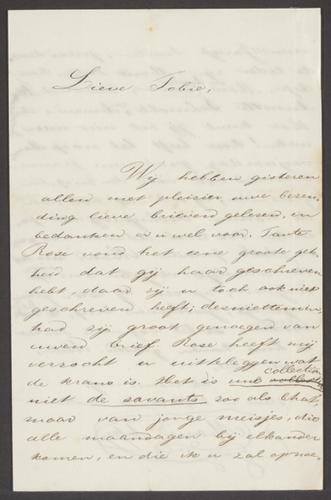 Lieve Tobie,
Wij hebben gisteren
allen met pleizier uwe
ding lieve brieven gelezen, en
bedanken er u wel voor. Tante
Rose vond het eene groote gek-
heid dat gij haar geschreven
hebt, daar zij u toch ook niet
geschreven heeft; desniettemin
had zij groot genoegen van
uwen brief. Rose heeft mij
verzocht u uitteleggen wat
de krans is. Het is une collection
niet de savants zoo als Chat,
maar van jonge meisjes, die
alle maandagen bij elkander
komen, en die ik u zal opnoe-